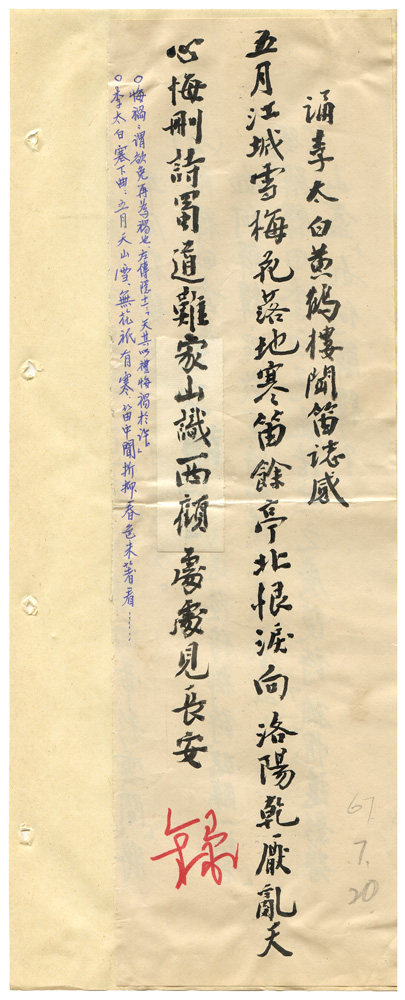 誦李太白黃鶴樓聞笛誌感
五月江城雪梅花落地寒笛餘亭北恨淚向洛陽乾厭亂天
心悔刪詩蜀道難家山識西顧處處見長安
○悔禍:謂欲免再為禍也.左傳隱十一「天其以禮悔禍於許」
○李太白塞下曲:五月天山雪.無花祇有寒.笛中聞折柳.春色未曾看……
錄
67.
7.
20